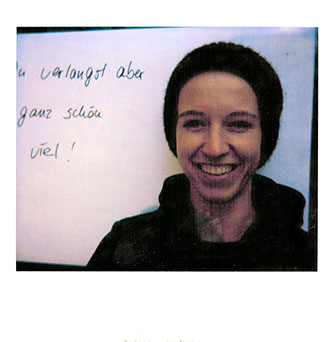 Du verlangst aber
ganz schön
viel!